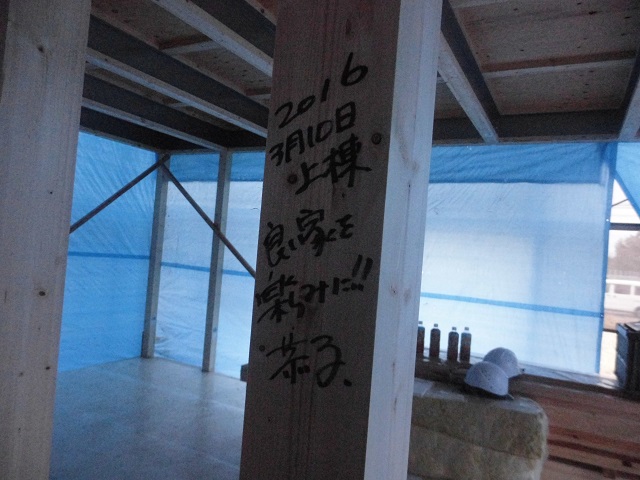 2016
3月10日
上棟
良い家を
楽しみに!!
恭子